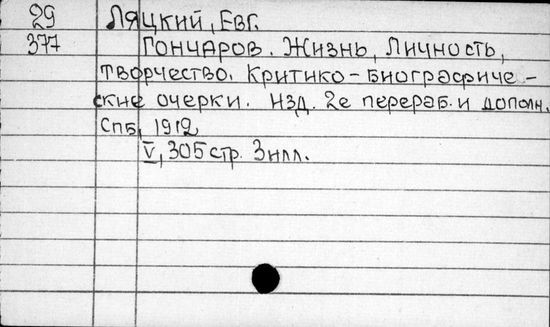 29 Ляцкий, Евг.
377 Гончаров. Жизнь, Личность,
творчество. Критико-биографиче-
ские очерки. Изд. 2е перераб. и дополн.
Спб, 1912
V, 305 стр. 3 илл.